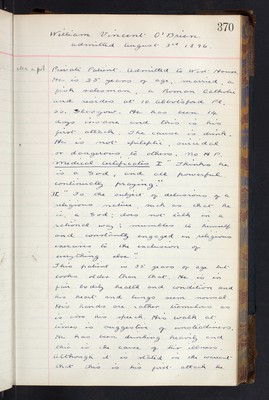 370
William Vincent O'Brien
admitted August 3rd 1896
Private Patient. Admitted to West House
He is 35 years of age, married, a
fish salesman, a Roman Catholic
and resides at 10
Glasgow. He has been 14
days insane and this is his
first attack. The cause is drink.
He is not epileptic, suicidal
or dangerous to others. No H.P.
Medical Certificates I "Thinks he
is a God, and all powerful,
continually praying."
II "Is the subject of delusions of a
religious nature such as that he
is a God; does not talk in a
rational way; mumbles to himself
and constantly engaged in religious
exercises to the exclusion of
everything else"
This patient is 35 years of age but
looks older than that. He is in
fair bodily health and condition and
his heart and lungs seem normal.
His hands are rather tremulous as
is also his speech. His walk at
times is suggestive of unsteadiness.
He has been drinking heavily and
this is the cause of his illness.
Although it is stated in the
that this is his first attack he